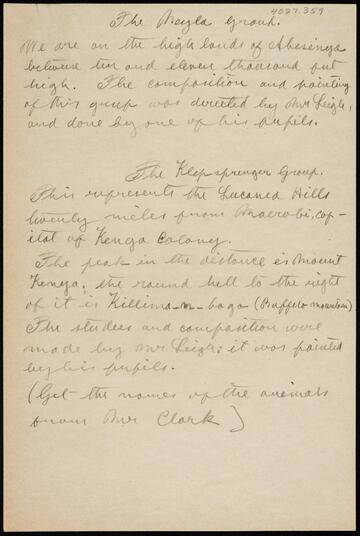 4027.359
The Nayla Group.
We are on the high lands of Abesinya
between ten and eleven thousand feet
high. The composition and painting
of this group was directed by Mr Leigh,
and done by one of his pupils.
The Klepsprenger Group.
This represents the Lucanea Hills
twenty miles from Naerobi, cap-
ital of Kenya Colony.
The peak in the distance is Mount
Kenya; the round hill to the right
of it is Killima-n-boga (Buffelo mountain)
The studies and composition were
made by Mr Leigh; it was painted
by his pupils.
(Get the names of the animals
from Mr Clark)